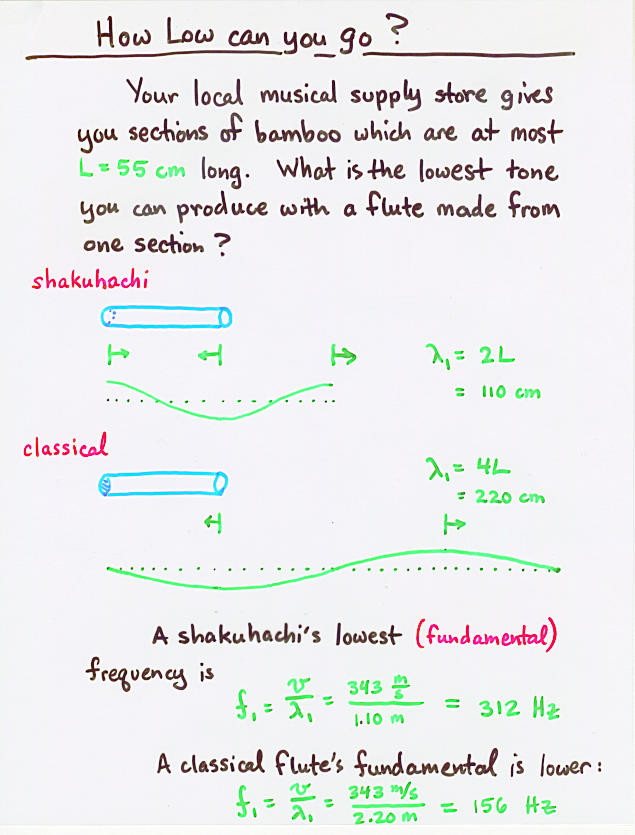 How Low can you go?
Your local musical supply store gives
you sections of bamboo which are at most
L = 55 cm long. What is the lowest tone
you can produce with a flute made from
one section?
shakuhachi
λ₁ = 2L
= 110 cm
classical
λ₁ = 4L
= 220 cm
A shakuhachi's lowest (fundamental)
frequency is
f₁ = v/λ₁ = 343 m/s / 1.10 m = 312 Hz
A classical flute's fundamental is lower:
f₁ = v/λ₁ = 343 m/s / 2.20 m = 156 Hz